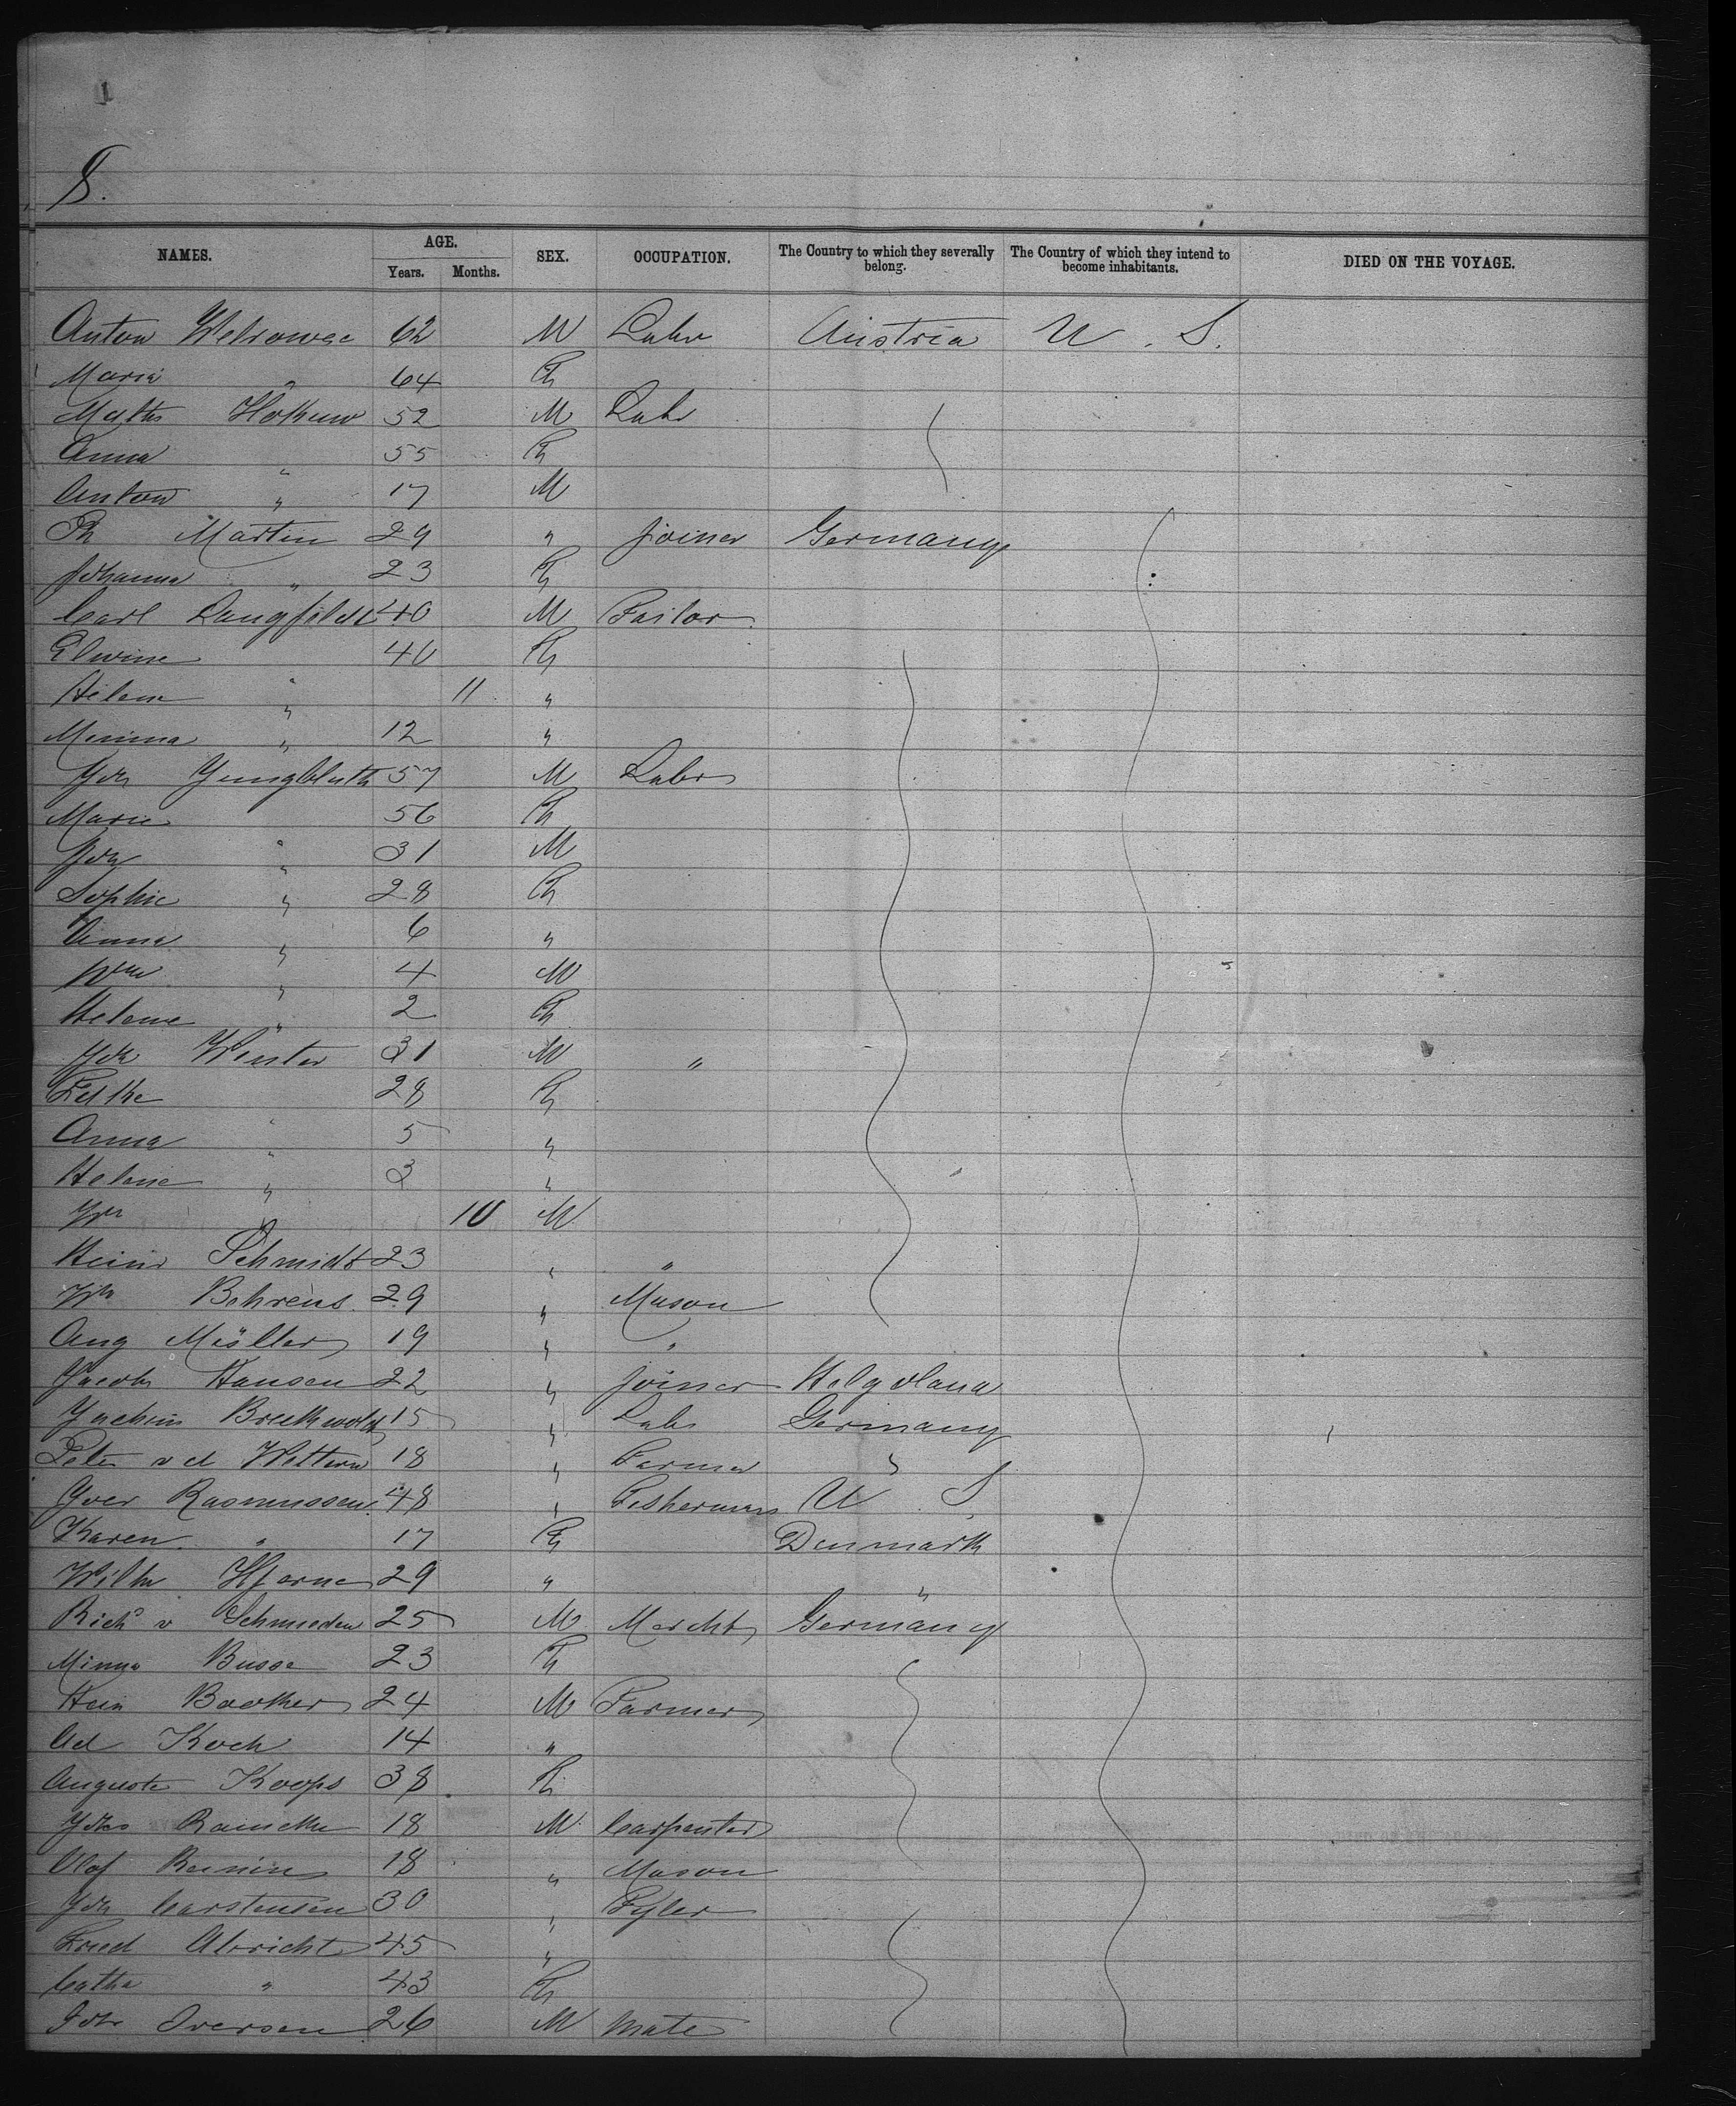 8.
NAMES. AGE. Years. Months. SEX. OCCUPATION. The Country to which they severally belong. The Country of which they intend to become inhabitants. DIED ON THE VOYAGE.
Anton 62 M Labr Austria U. S.
Maria " 64 F
Math 52 M Labr
Anna " 55 F
Anton " 17 M
Ph Martin 29 " joiner Germany
Johanna " 23 F
Carl Langfeldt 40 M Tailor
Elwine " 40 F
Helene " 11 "
Minna " 12 "
Joh Jungbluth 57 M Labr
Marie " 56 F
Joh " 31 M
Sophie " 28 F
Anna " 6 "
Wm " 4 M
Helene " 2 F
Joh Winter 31 M "
28 F
Anna " 5 "
Helene " 3 "
Joh " 10 M
Heinr Schmidt 23 " "
Joh Behrens 29 " Mason
Aug Müller 19 " "
Jacob Hansen 22 " joiner Helgoland
Jochim Breckwoldt 15 " Labr Germany
Peter v d Wettern 18 " Farmer "
Iver Rasmussen 48 " Fisherman U S.
Karen " 17 F Denmark
Wilhe 29 " "
Richd v Schmieden 25 M Mercht Germany
Minna Busse 23 F
Hein 24 M Farmer
Ad Koch 14 "
Auguste Koops 38 F
Johs 18 M Carpenter
Olof 18 " Mason
Joh Carstensen 30 " Tyler
Fried Albricht 45 "
Cathe " 43 F
Joh Iversen 26 M Mate